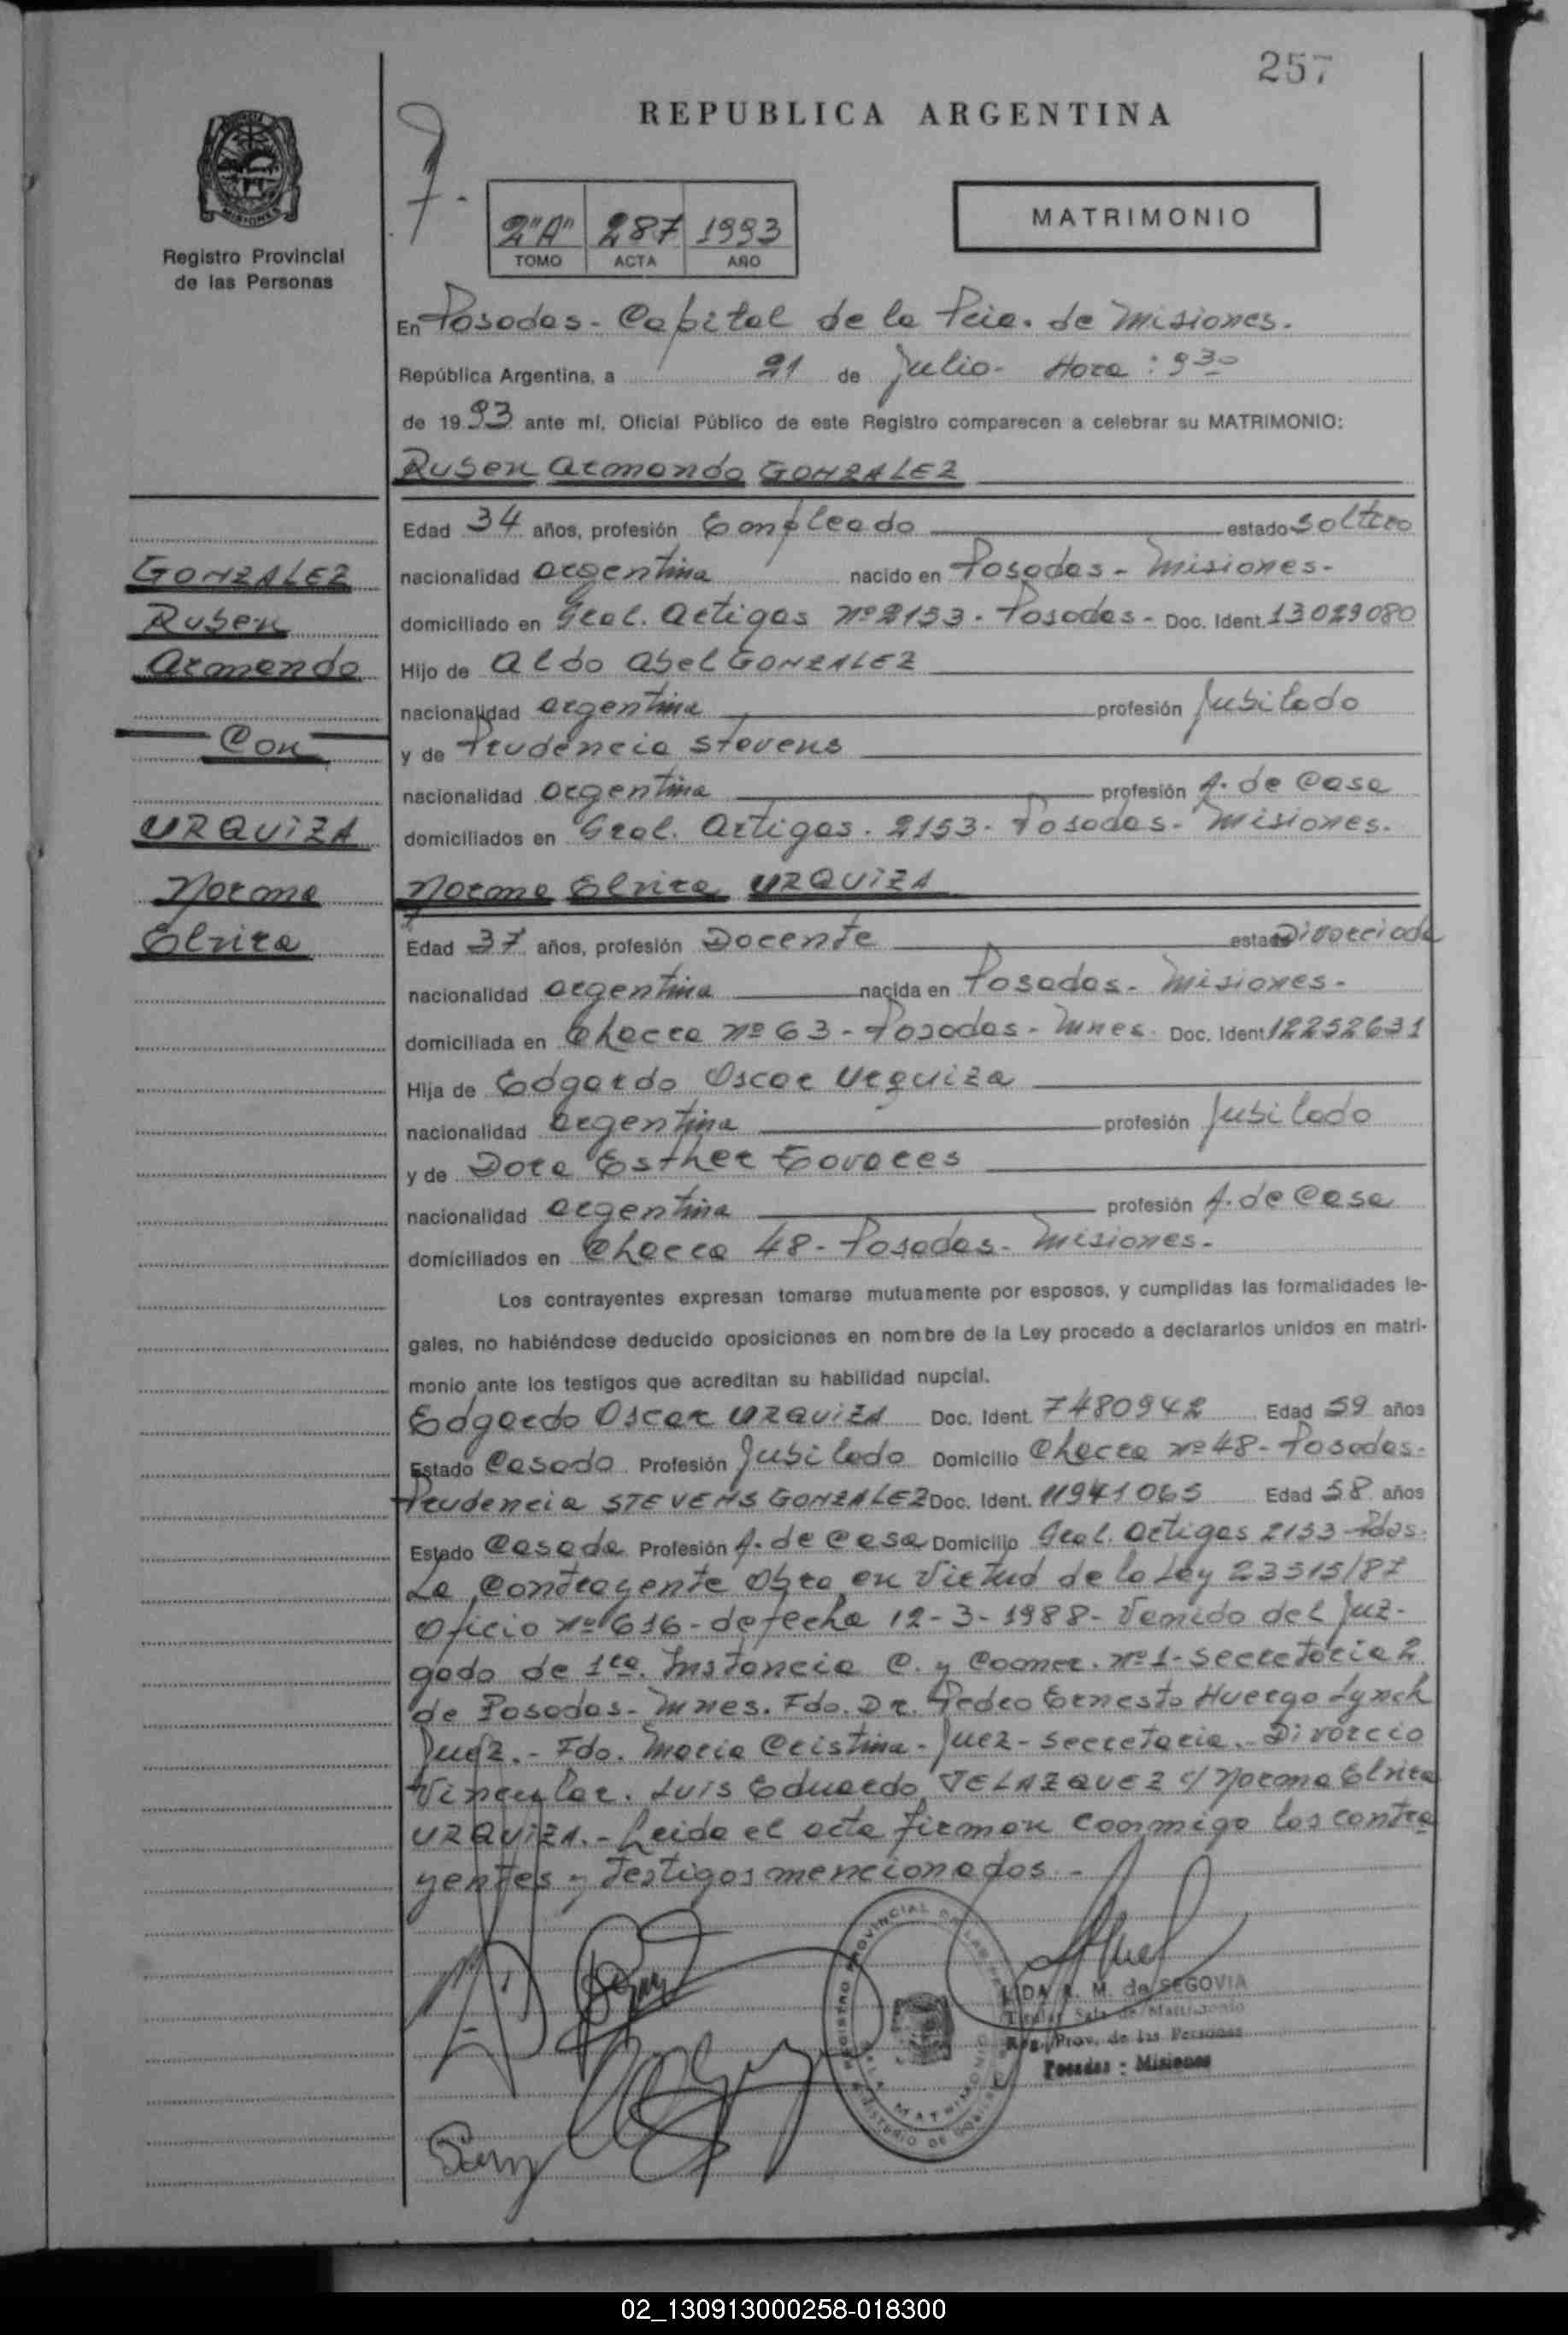 257
REPUBLICA ARGENTINA
Registro Provincial
de las Personas
2"A" 287 1993
TOMO ACTA AÑO
MATRIMONIO
En Posadas - Capital de la Pcia. de Misiones.
República Argentina, a 21 de Julio - Hora: 9 30
de 19 93 ante mí, Oficial Público de este Registro comparecen a celebrar su MATRIMONIO:
Ruben Armando GONZALEZ
Edad 34 años, profesión Empleado estado soltero
GONZALEZ
Ruben
Armando
Con
URQUIZA
Norma
Elvira
nacionalidad argentina nacido en Posadas - Misiones -
domiciliado en Gral. Artigas nº 2153 - Posadas - Doc. Ident. 13029080
Hijo de Aldo Abel GONZALEZ
nacionalidad argentina profesión Jubilado
y de Prudencia Stevens
nacionalidad argentina profesión A. de Casa
domiciliados en Gral. Artigas. 2153 - Posadas - Misiones.
Norma Elvira URQUIZA
Edad 37 años, profesión Docente estado Divorciada
nacionalidad argentina nacida en Posadas - Misiones -
domiciliada en Chacra nº 63 - Posadas - Mnes. Doc. Ident. 12252631
Hija de Edgardo Oscar Urquiza
nacionalidad argentina profesión Jubilado
y de Dora Esther
nacionalidad argentina profesión A. de Casa
domiciliados en Chacra 48 - Posadas - Misiones -
Los contrayentes expresan tomarse mutuamente por esposos, y cumplidas las formalidades le-
gales, no habiéndose deducido oposiciones en nombre de la Ley procedo a declararlos unidos en matri-
monio ante los testigos que acreditan su habilidad nupcial.
Edgardo Oscar URQUIZA Doc. Ident. 7480942 Edad 59 años
Estado Casado Profesión Jubilado Domicilio Chacra nº 48 - Posadas -
Prudencia STEVENS GONZALEZ Doc. Ident. 11941065 Edad 58 años
Estado Casada Profesión A. de Casa Domicilio Gral. Artigas 2153 - Pdas.
La Contrayente Obra en Virtud de la Ley 23515/87
Oficio nº 616 - de fecha 12-3-1988 - Venido del Juz-
gado de 1ra. Instancia C. y Comer. nº 1 - Secretaria 2
de Posadas - Mnes. Fdo. Dr. Pedro Ernesto Huergo Lynch
Juez. - Fdo. Maria Cristina - Juez - Secretaria. - Divorcio
Vincular. Luis Eduardo VELAZQUEZ c/ Norma Elvira
URQUIZA. - Leida el acta firman conmigo los contra
yentes y testigos mencionados -
LIDA A. M. de SEGOVIA
Titular Sala de Matrimonio
Reg. Prov. de las Personas
Posadas : Misiones
02_130913000258-018300